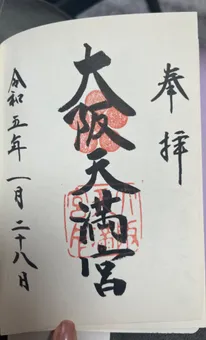 奉拝
大阪天満宮
令和五年一月二十八日